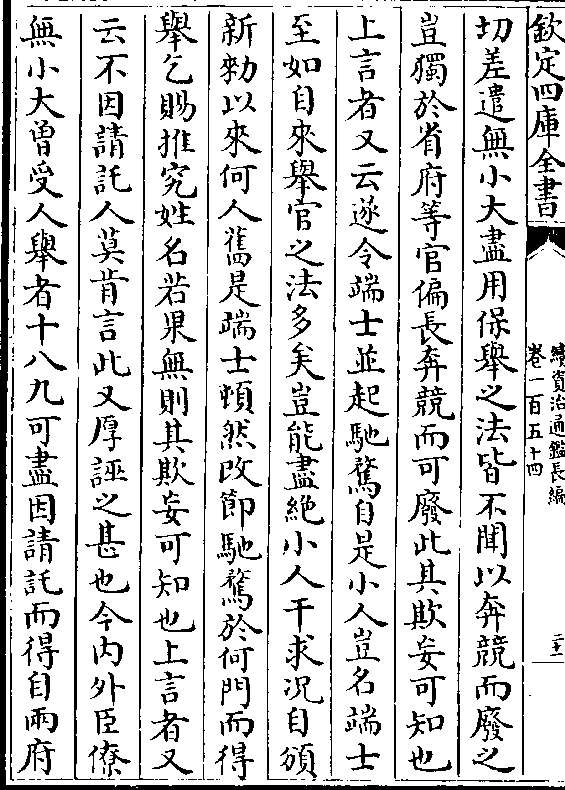 欽定四庫全書
續資治通鑑長編
卷一百五十四
切差遣無小大盡用保舉之法皆不聞以奔競而廢之
豈獨於省府等官偏長奔競而可廢此其欺妄可知也
上言者又云遂令端士並起馳騖自是小人豈名端士
至如自來舉官之法多矣豈能盡絶小人干求况自頒
新勑以來何人舊是端士頓然改節馳騖於何門而得
舉乞賜推究姓名若果無則其欺妄可知也上言者又
云不因請託人莫肯言此又厚誣之甚也今内外臣僚
無小大曾受人舉者十八九可盡因請託而得自兩府